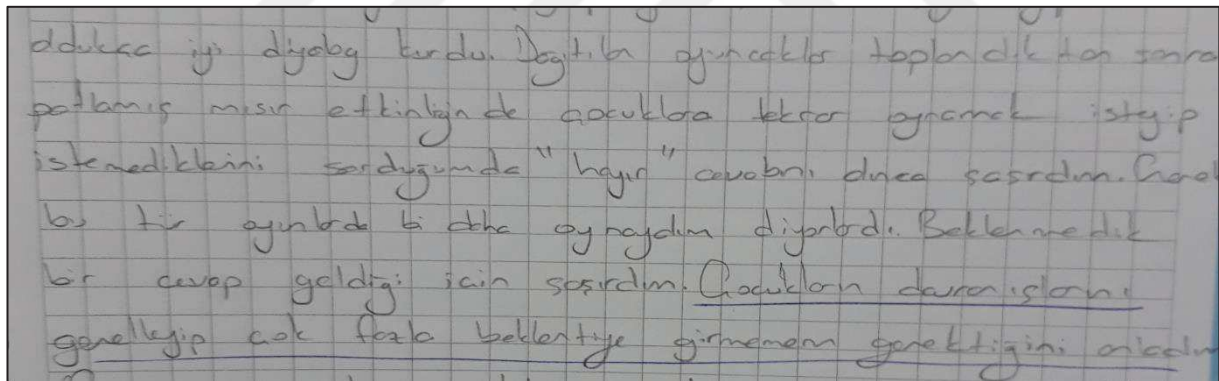 oldukça iyi diyalog kurdu. Dağıtılan oyuncaklar toplandıktan sonra
patlamış mısır etkinliğinde çocuklara tekrar oynamak isteyip
istemediklerini sorduğumda "hayır" cevabını duyca şaşırdım. Genel
bu tür oyunlarda bi daha oynaydım diyorlardı. Beklenmedik
bir cevap geldiği için şaşırdım. Çocukların davranışlarını
genelleyip çok fazla beklentiye girmemem gerektiğini anladım